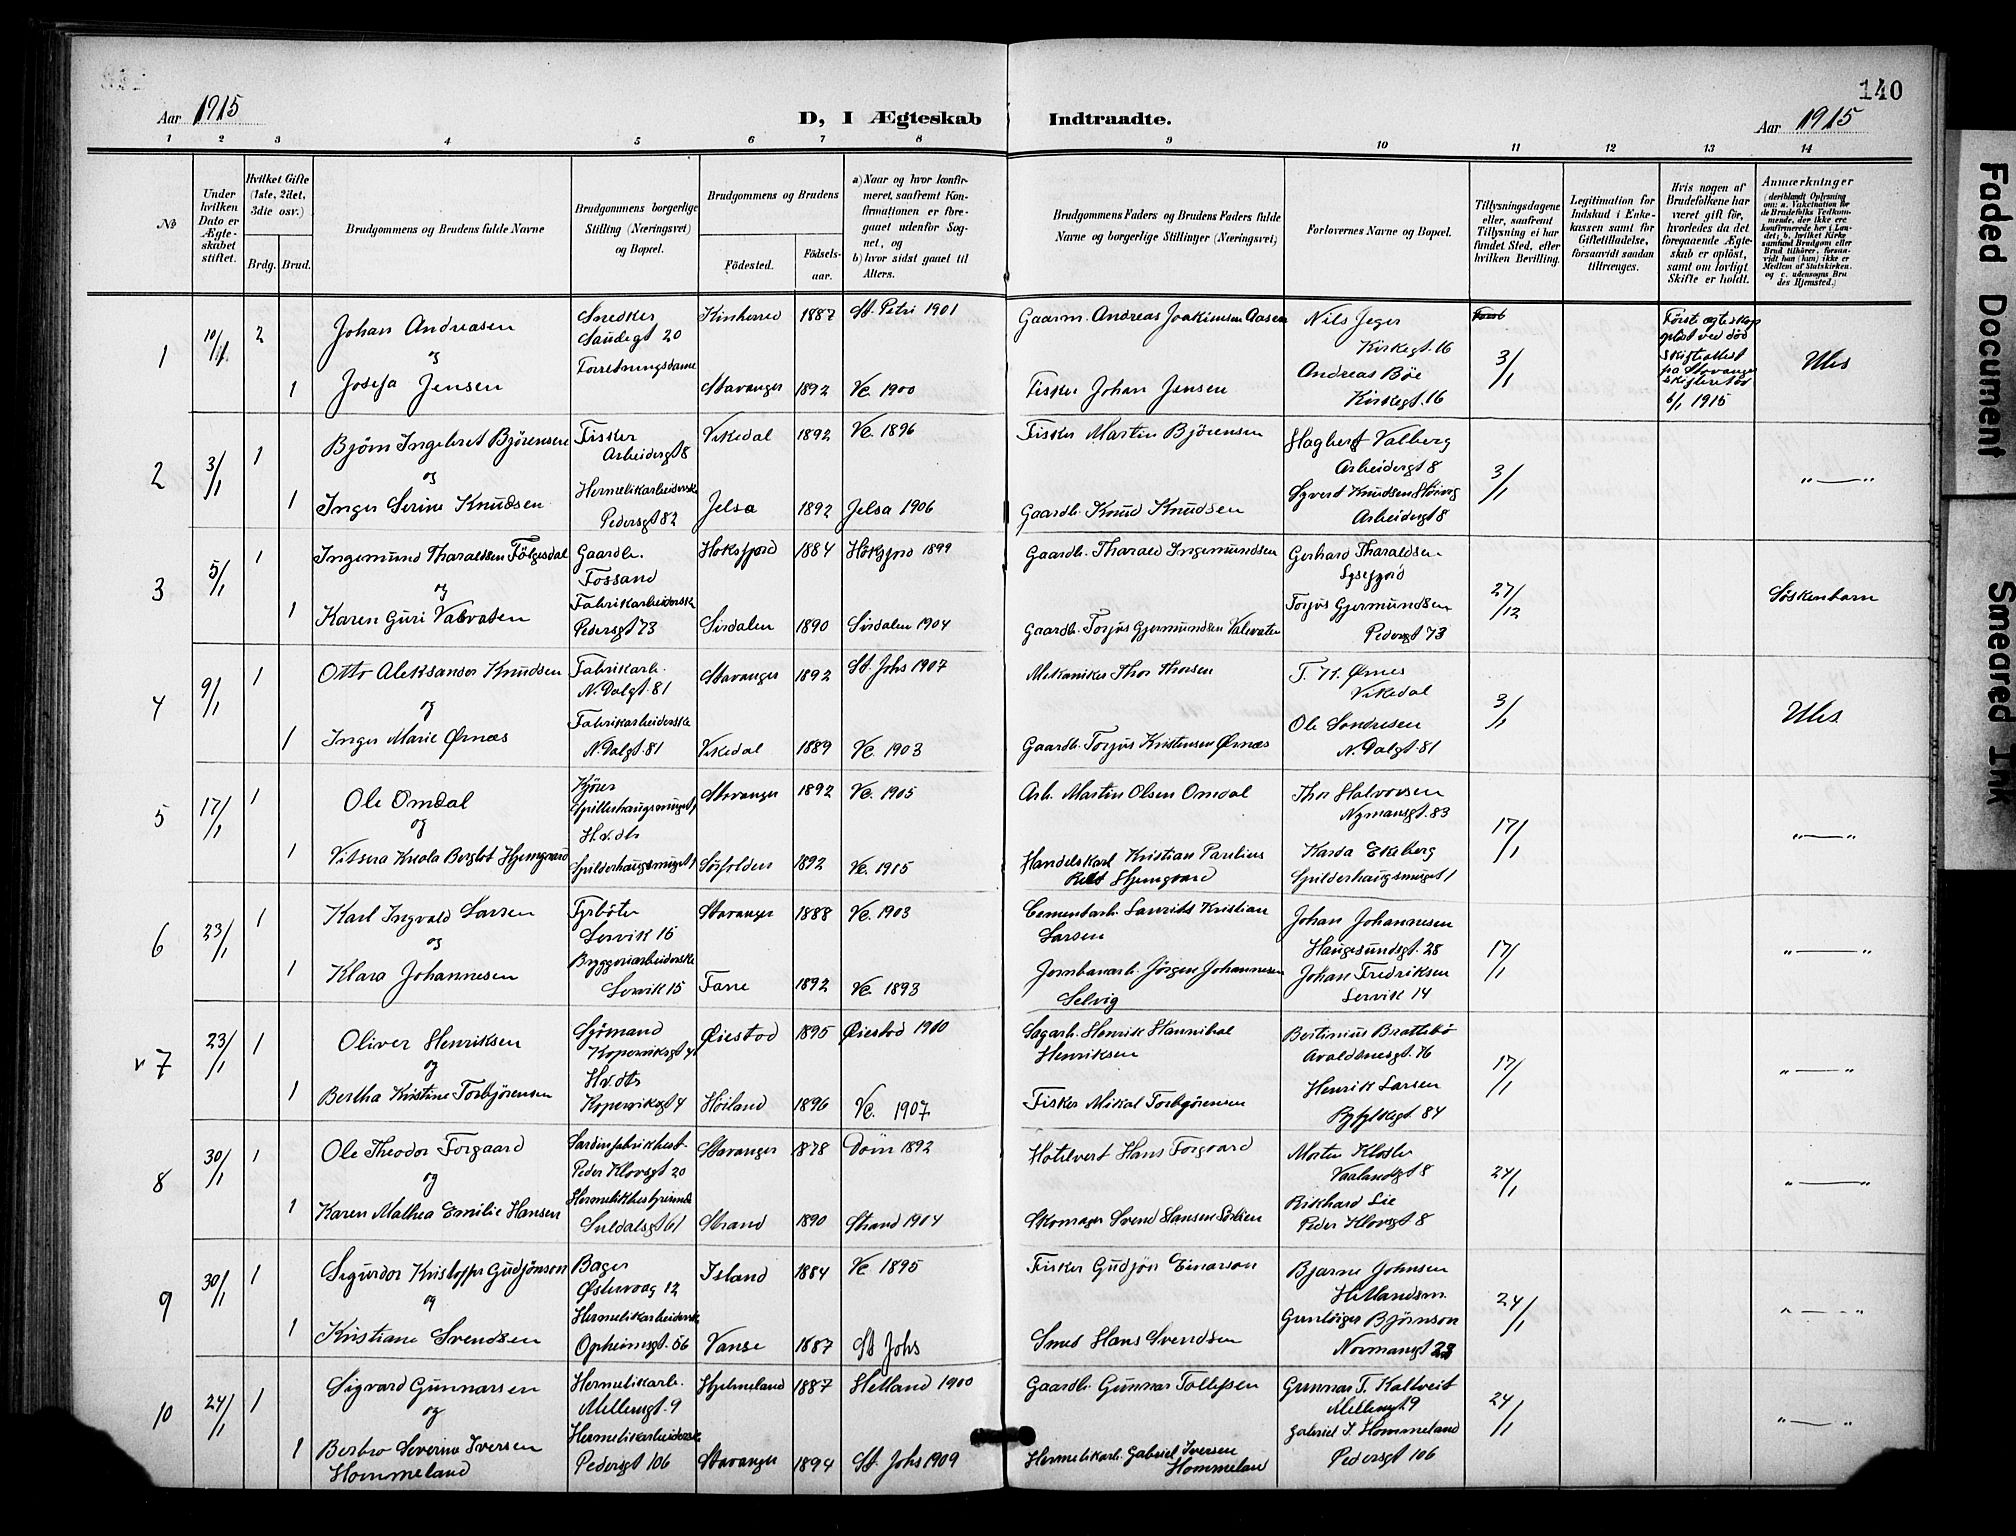 140
Aar 1915
D, I Ægteskab Indtraadte.
Aar 1915
1 2 3 4 5 6 7 8 9 10 11 12 13 14
№
Under hvilken Dato er Ægteskabet stiftet.
Hvilket Gifte (1ste, 2det, 3die osv.)
Brdg. Brud.
Brudgommens og Brudens fulde Navne
Brudgommens borgerlige Stilling (Næringsvei) og Bopæl.
Brudgommens og Brudens
Födested.
Födsels-aar.
a) Naar og hvor konfirmeret, saafremt Konfirmationen er foregaaet udenfor Sognet, og
b) hvor sidst gaaet til Alters.
Brudgommens Faders og Brudens Faders fulde Navne og borgerlige Stillinger (Næringsvei)
Forlovernes Navne og Bopæl.
Tillysningsdagene eller, saafremt Tillysning ei har fundet Sted, efter hvilken Bevilling.
Legitimation for Indskud i Enkekassen samt for Giftetilladelse, forsaavidt saadan tiltrænges.
Hvis nogen af Brudefolkene har været gift för, hvorledes da det foregaaende Ægteskab er oplöst, samt om lovligt Skifte er holdt.
Anmærkninger
1 10/1 2 Johan Andreasen Snedker Kinherred 1887 St. Petri 1901 Gaarm. Andreas Joakimsen Aasen Nils Jeger
og Saudegt 20 Kirkegt. 16 3/1
Forretningsdame Andreas Bøe
1 Josefa Jensen Stavanger 1892 Vc. 1900 Fisker Johan Jensen Kirkegt. 16
Første ægteskap
opløst ved død
på Stavanger
6/1 1915
2 3/1 1 Bjørn Ingebret Bjørensen Fisker Vikedal 1892 Vc. 1896 Fisker Martin Bjørensen Hagbert Valberg
og Arbeidergt 8 Arbeidergt 8 3/1 "—"
Hermetikarbeiderske Syvert Knudsen
1 Inger Serine Knudsen Pedersgt 82 Jelsa 1892 Jelsa 1906 Gaardb. Knud Knudsen Arbeidergt 8
3 5/1 1 Ingemund Tharaldsen Følgesdal Gaardb. Høksfjord 1884 Høksfjord 1899 Gaardb. Tharald Ingemundsen Gerhard Tharaldsen
og Fossand Lysefjord 27/12 Søskenbarn
Fabrikarbeiderske Torjus Gjermundsen
1 Karen Guri Valevaten Pedersgt 73 Sirdalen 1890 Sirdalen 1904 Gaardb. Torjus Gjermundsen Valevaten Pedersgt 73
4 9/1 1 Otto Aleksander Knudsen Fabrikarb. Stavanger 1892 St. Johs 1907 Mekaniker Thor Thorsen T. K. Ørnes
og N. Dalgt. 81 Vikedal 3/1
Fabrikarbeiderske Ole Sondresen
1 Inger Marie Ørnæs N. Dalgt 81 Vikedal 1889 Vc. 1903 Gaardb. Torjus Kristensen Ørnæs N. Dalgt. 81
5 17/1 1 Ole Omdal Kjører Stavanger 1892 Vc. 1905 Arb. Martin Olsen Omdal Thor Halvorsen
og Spilderhaugsmuget 1 Nymansgt. 83 17/1 "—"
H. v. dtr
1 Bergljot Hjemgaard Spilderhaugsmuget 1 Sørfolden 1892 Vc. 1915 Handelskarl Kristian Paulius Karda Ekeberg
Hjemgaard Spilderhaugsmuget 1
6 23/1 1 Karl Ingvald Larsen Fyrbøter Stavanger 1888 Vc. 1903 Cementarb. Laurits Kristian Johan Johannesen
og Lervik 15 Larsen Haugesundsgt. 28 17/1 "—"
Bryggeriarbeiderske Johan Fredriksen
1 Klara Johannesen Lervik 15 Fane 1892 Vc. 1893 Jernbanarb. Jørgen Johannesen Lervik 14
Selvig
v 7 23/1 1 Oliver Henriksen Sjømand Øiestad 1895 Øiestad 1910 Sagarb. Henrik Hannibal Bertinius Brattebø
og Kopervikgt 4 Henriksen Avaldsnesgt. 76 17/1 "—"
H. v. dtr Henrik Larsen
1 Bertha Kristine Torbjørensen Kopervikgt 4 Høiland 1896 Vc. 1907 Fisker Mikal Torbjørensen Ryfylkegt. 84
8 30/1 1 Ole Theodor Forgaard Stavanger 1878 Dom 1892 Hotelvert Hans Forgaard Morten Kloster
og Peder Klovsgt 20 Vaalandgt 8 24/1 "—"
Rikhard Lie
1 Karen Mathea Emilie Hansen Suldalsgt 61 Strand 1890 Strand 1904 Skomager Svend Hansen Peder Klovsgt 8
9 30/1 1 Sigurdor Kristoffer Gudjønson Bager Island 1884 Vc. 1895 Fisker Gudjøn Einarson Bjarne Johnsen
og Østervaag 12 Hetlandsm. 24/1 "—"
Hermetikarbeiderske Gunløiger Bjørnson
1 Kristiane Svendsen Opheimsgt. 56 Vanse 1887 St Johs Smed Hans Svendsen Normansgt 23
10 24/1 1 Sigvard Gunnarsen Hermetikarb. Hjelmeland 1887 Hetland 1900 Gaardb. Gunnar Tollefsen Gunnar T. Kaltveit
og Møllergt. 9 Møllergt. 9 24/1 "—"
Hermetikarbeiderske Gabriel I. Hommeland
1 Berbro Severine Iversen Pedersgt 106 Stavanger 1894 St. Johs 1909 Hermetikarb. Gabriel Iversen Pedersgt 106
Hommeland Hommeland
Faded Document
Smeared Ink